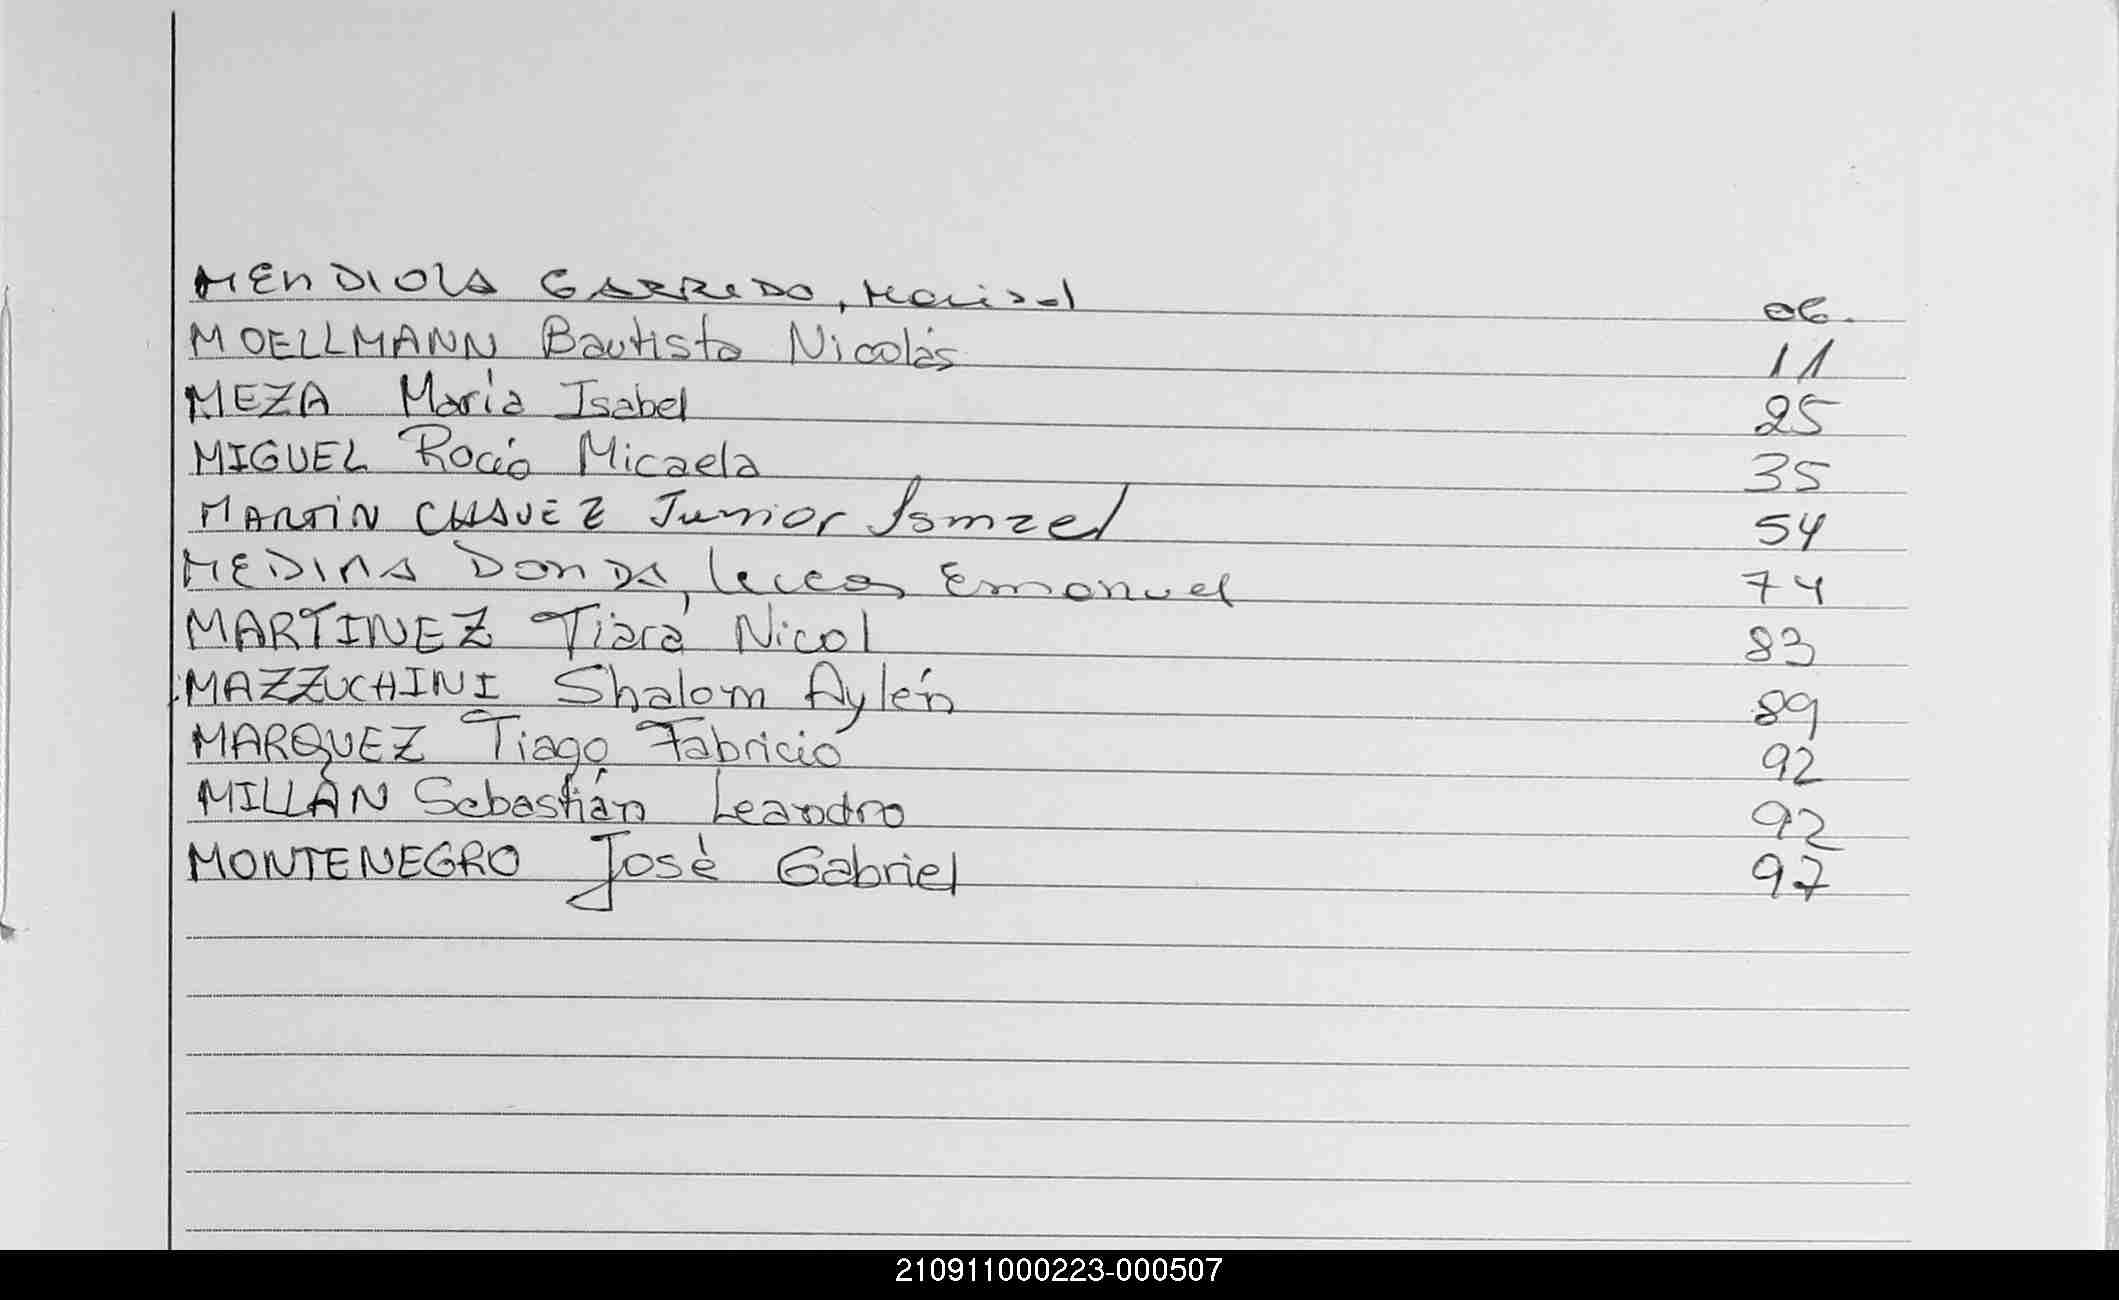 MENDIOLA GARRIDO, Marisol 06.
MOELLMANN Bautista Nicolás 11
MEZA María Isabel 25
MIGUEL Rocío Micaela 35
MARTÍN CHAVEZ Junior Ismael 54
MEDINA DONDA, Lucas Emanuel 74
MARTINEZ Tiara Nicol 83
MAZZUCHINI Shalom Aylén 89
MARQUEZ Tiago Fabricio 92
MILLÁN Sebastián Leandro 92
MONTENEGRO José Gabriel 97
210911000223-000507